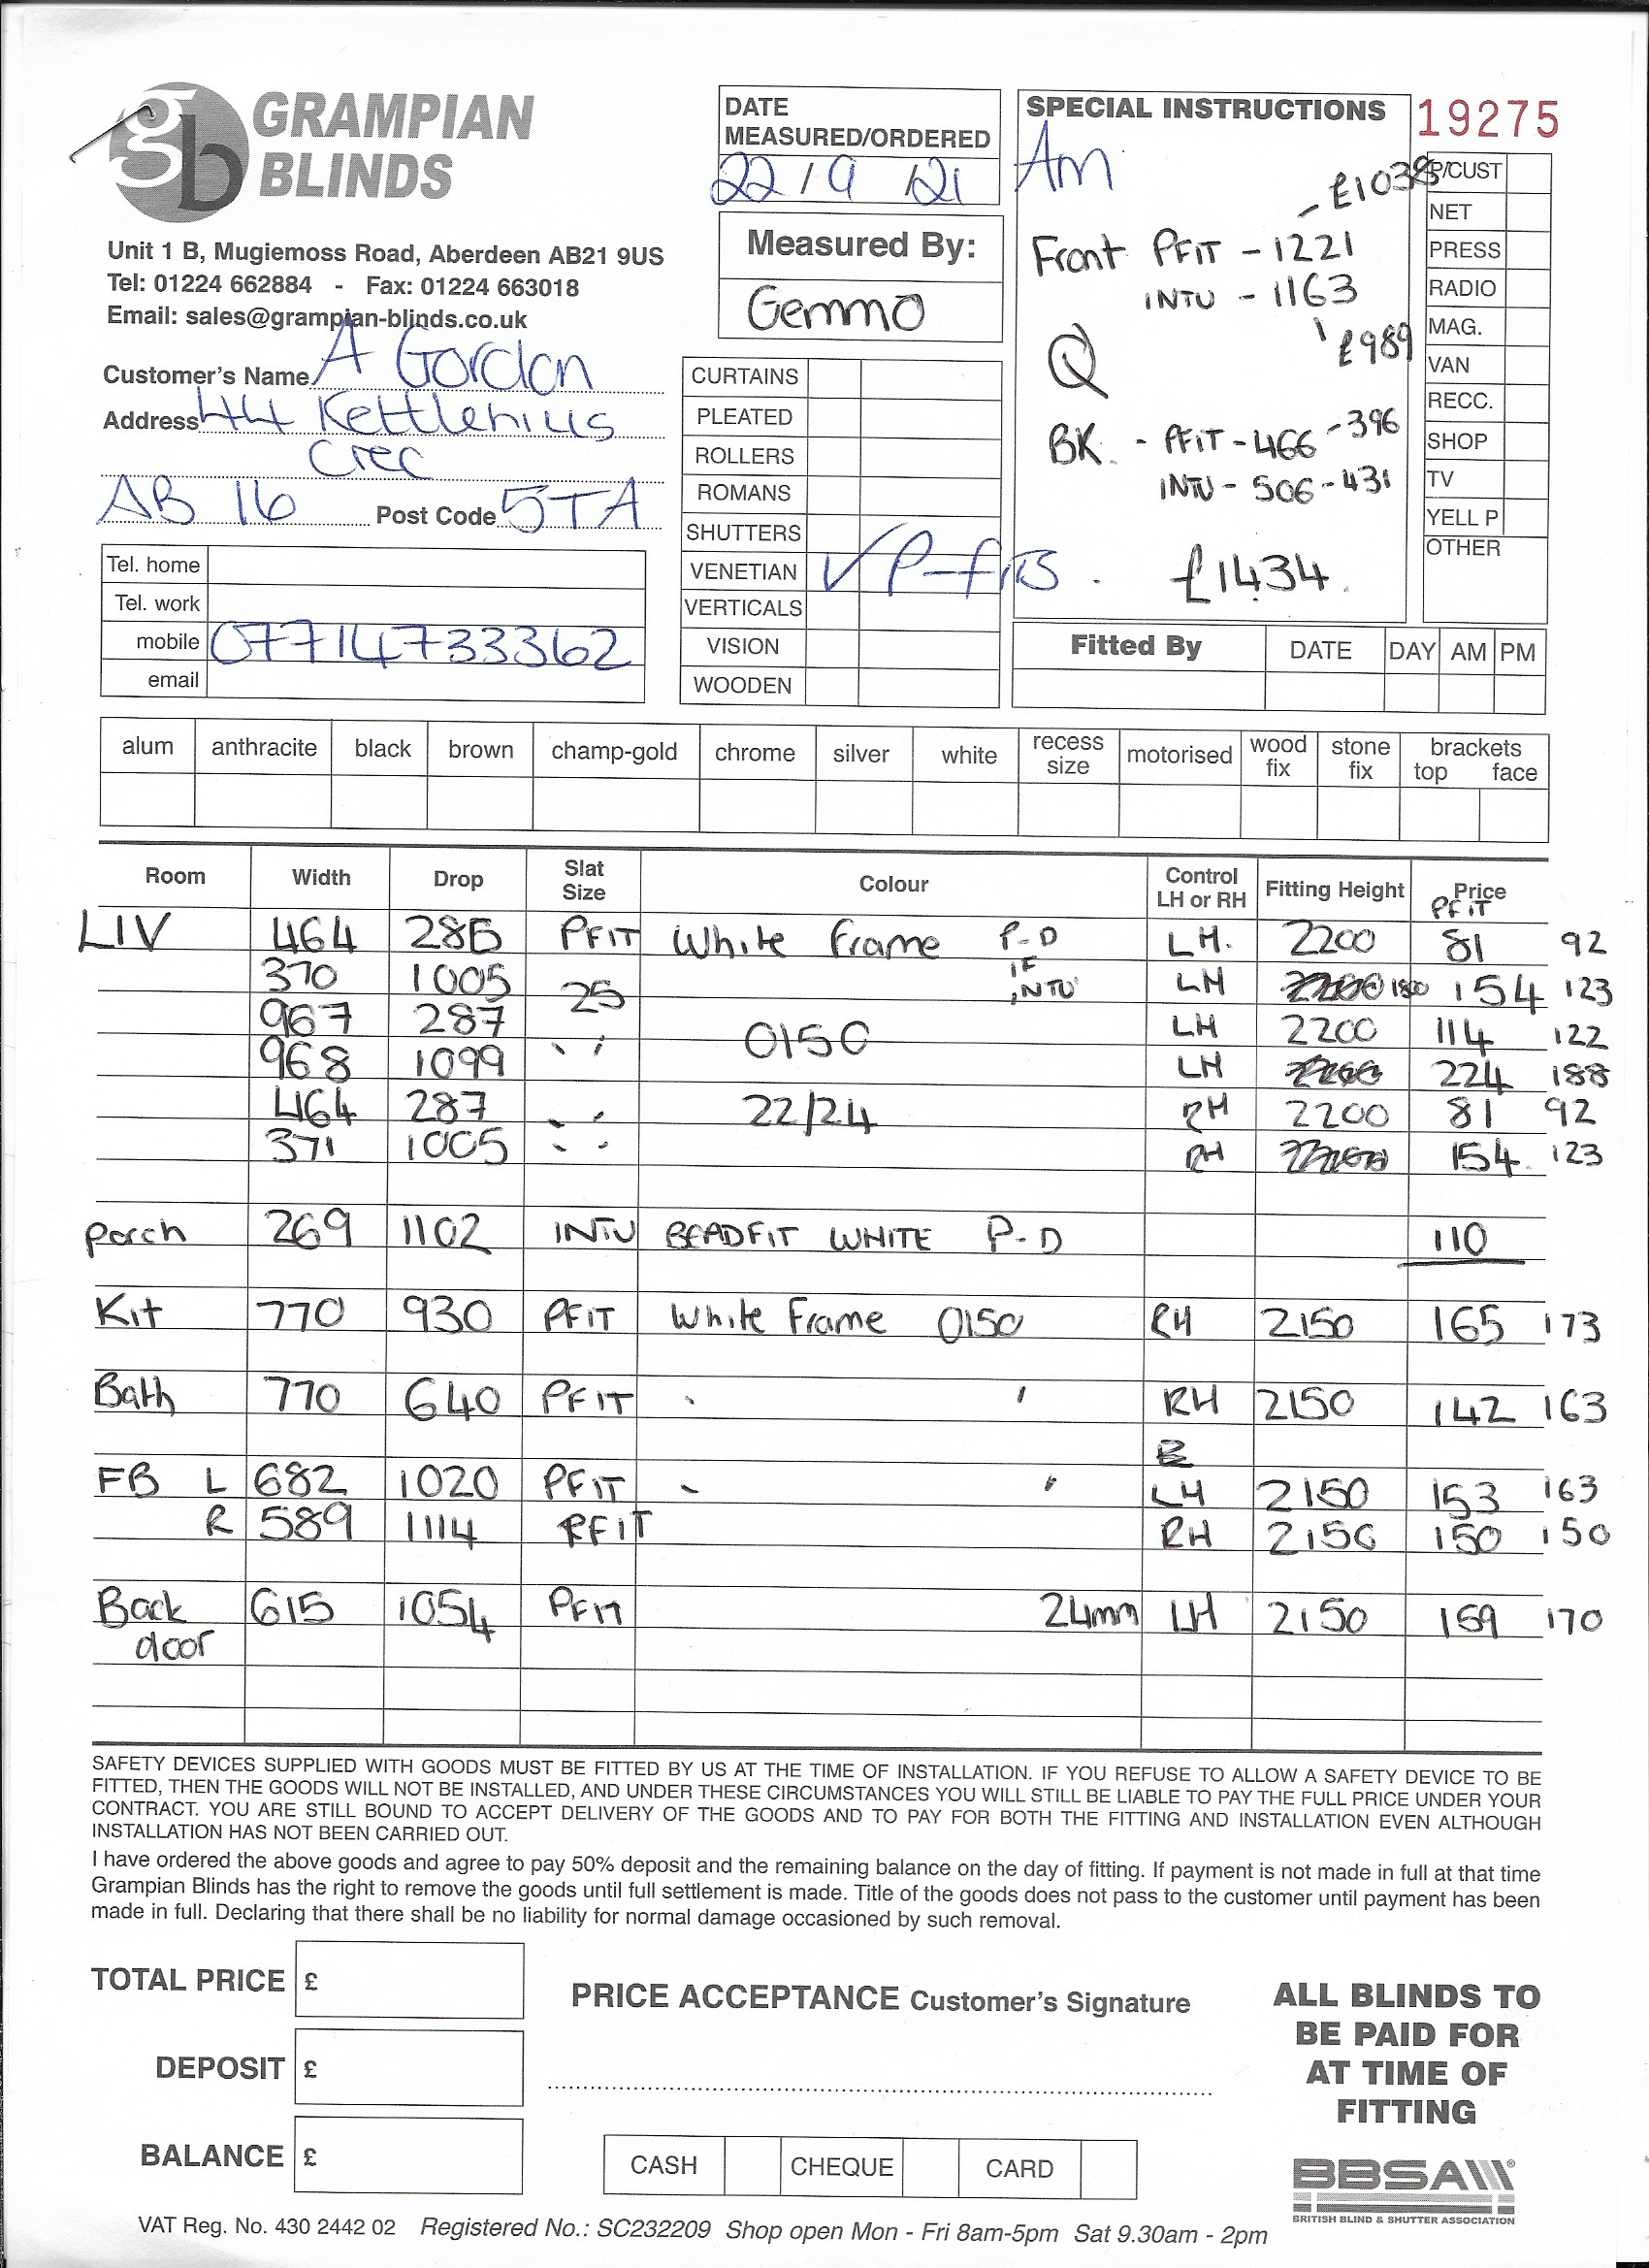 GRAMPIAN
BLINDS
Unit 1 B, Mugiemoss Road, Aberdeen AB21 9US
Tel: 01224 662884 - Fax: 01224 663018
Email: sales@grampian-blinds.co.uk
Customer's Name A Gordon
Address 44 Kettlehills
Cres
AB 16 Post Code 5TA
Tel. home
Tel. work
mobile 07714733362
email
DATE
MEASURED/ORDERED
22 / 9 / 21
Measured By:
Gemma
CURTAINS
PLEATED
ROLLERS
ROMANS
SHUTTERS
VENETIAN ✓ P-fits.
VERTICALS
VISION
WOODEN
SPECIAL INSTRUCTIONS
Am
- £1038
Front PFIT - 1221
INTU - 1163
£989
Q
BK. - PFIT - 466 - 396
INTU - 506 - 431
£1434.
19275
P/CUST
NET
PRESS
RADIO
MAG.
VAN
RECC.
SHOP
TV
YELL P
OTHER
Fitted By DATE DAY AM PM
alum anthracite black brown champ-gold chrome silver white recess size motorised wood fix stone fix brackets top face
Room Width Drop Slat Size Colour Control LH or RH Fitting Height Price
PFIT
LIV 464 285 PFIT White Frame P-D LH. 2200 81 92
370 1005 25 IF INTU LH 154 123
967 287 LH 2200 114 122
968 1099 " 0150 LH 224 188
464 287 " 22/24 RH 2200 81 92
371 1005 " RH 154. 123
Porch 269 1102 INTU BEADFIT WHITE P-D 110
Kit 770 930 PFIT White Frame 0150 RH 2150 165 173
Bath 770 640 PFIT " RH 2150 142 163
FB L 682 1020 PFIT " LH 2150 153 163
R 589 1114 PFIT RH 2150 150 150
Back door 615 1054 PFIT 24mm LH 2150 159 170
SAFETY DEVICES SUPPLIED WITH GOODS MUST BE FITTED BY US AT THE TIME OF INSTALLATION. IF YOU REFUSE TO ALLOW A SAFETY DEVICE TO BE
FITTED, THEN THE GOODS WILL NOT BE INSTALLED, AND UNDER THESE CIRCUMSTANCES YOU WILL STILL BE LIABLE TO PAY THE FULL PRICE UNDER YOUR
CONTRACT. YOU ARE STILL BOUND TO ACCEPT DELIVERY OF THE GOODS AND TO PAY FOR BOTH THE FITTING AND INSTALLATION EVEN ALTHOUGH
INSTALLATION HAS NOT BEEN CARRIED OUT.
I have ordered the above goods and agree to pay 50% deposit and the remaining balance on the day of fitting. If payment is not made in full at that time
Grampian Blinds has the right to remove the goods until full settlement is made. Title of the goods does not pass to the customer until payment has been
made in full. Declaring that there shall be no liability for normal damage occasioned by such removal.
TOTAL PRICE £
DEPOSIT £
BALANCE £
PRICE ACCEPTANCE Customer's Signature
CASH CHEQUE CARD
ALL BLINDS TO
BE PAID FOR
AT TIME OF
FITTING
BBSA
BRITISH BLIND & SHUTTER ASSOCIATION
VAT Reg. No. 430 2442 02 Registered No.: SC232209 Shop open Mon - Fri 8am-5pm Sat 9.30am - 2pm